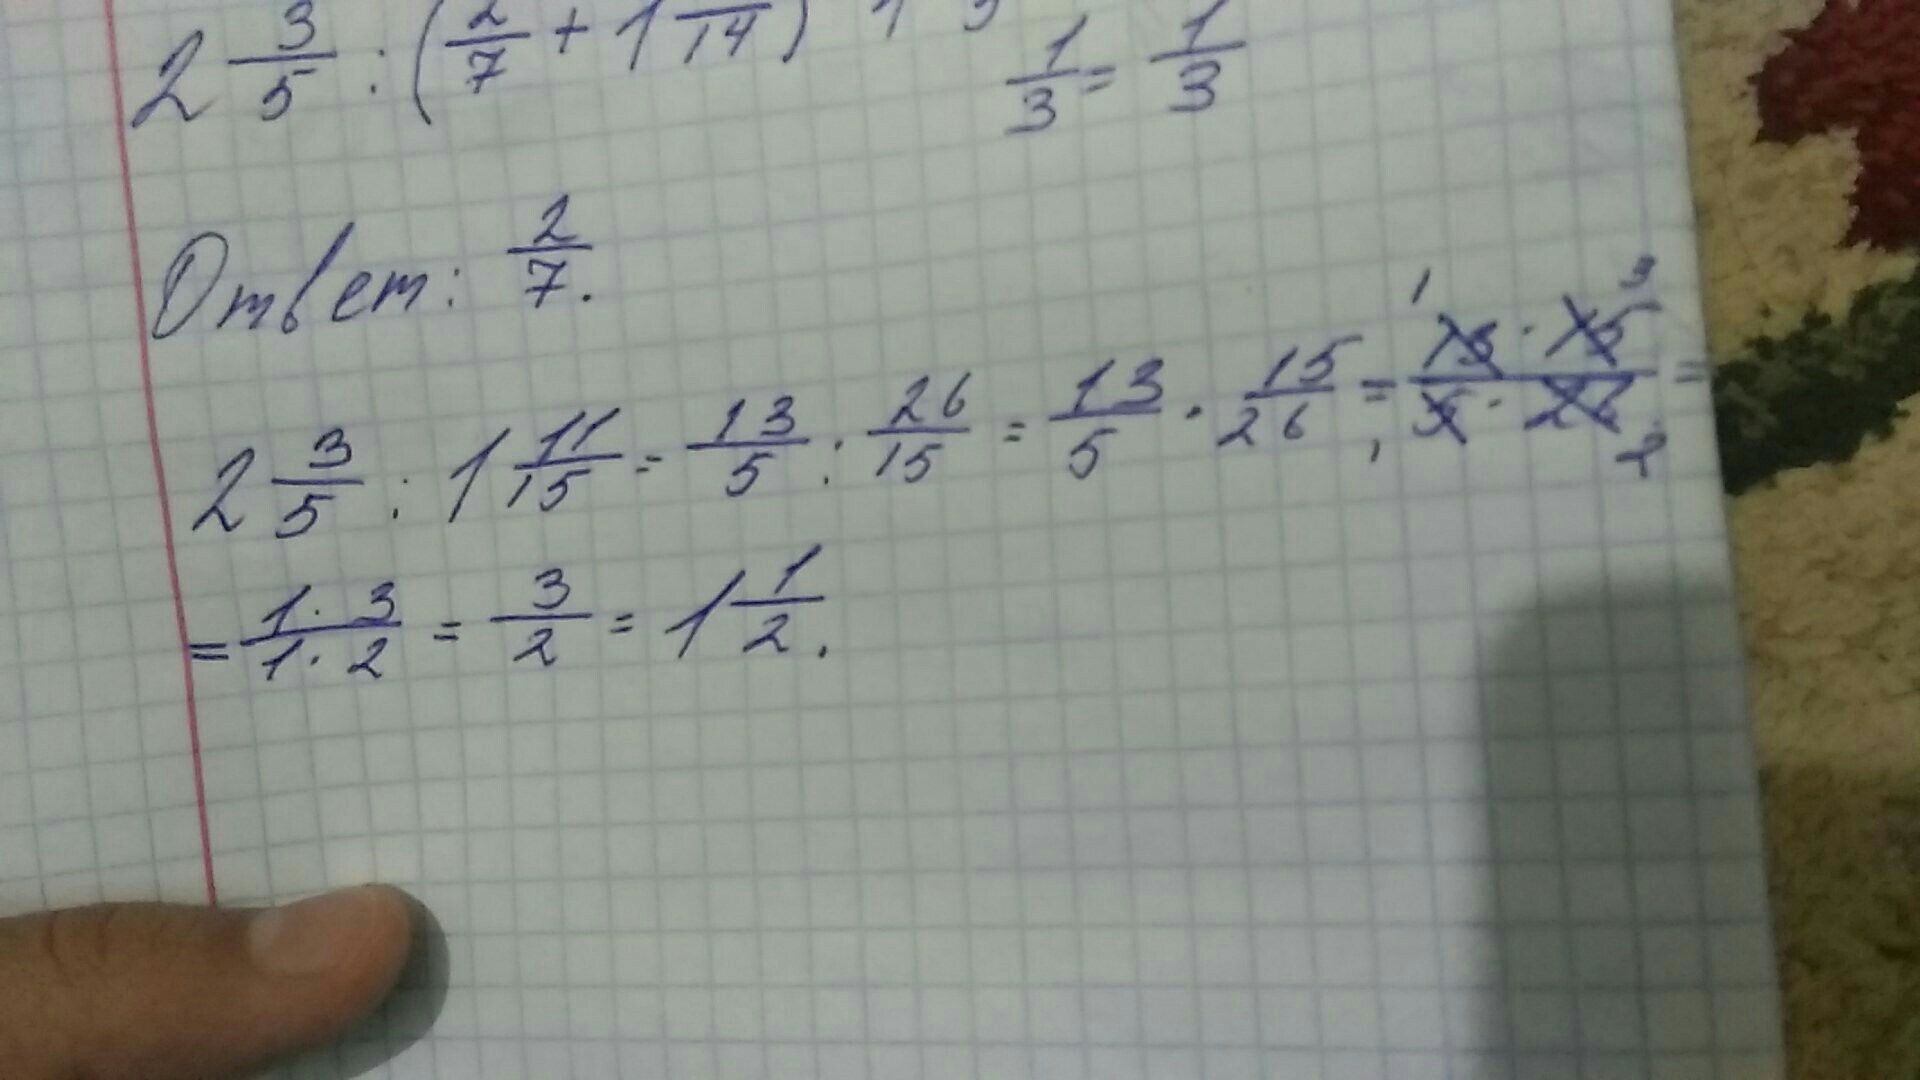 2 3/5 : (2/7 + 1 /14)
1/3 = 1/3
Ответ: 2/7.
2 3/5 : 1 11/15 = 13/5 : 26/15 = 13/5 · 15/26 = 13 · 15 / 5 · 26 =
= 1 · 3 / 1 · 2 = 3/2 = 1 1/2.